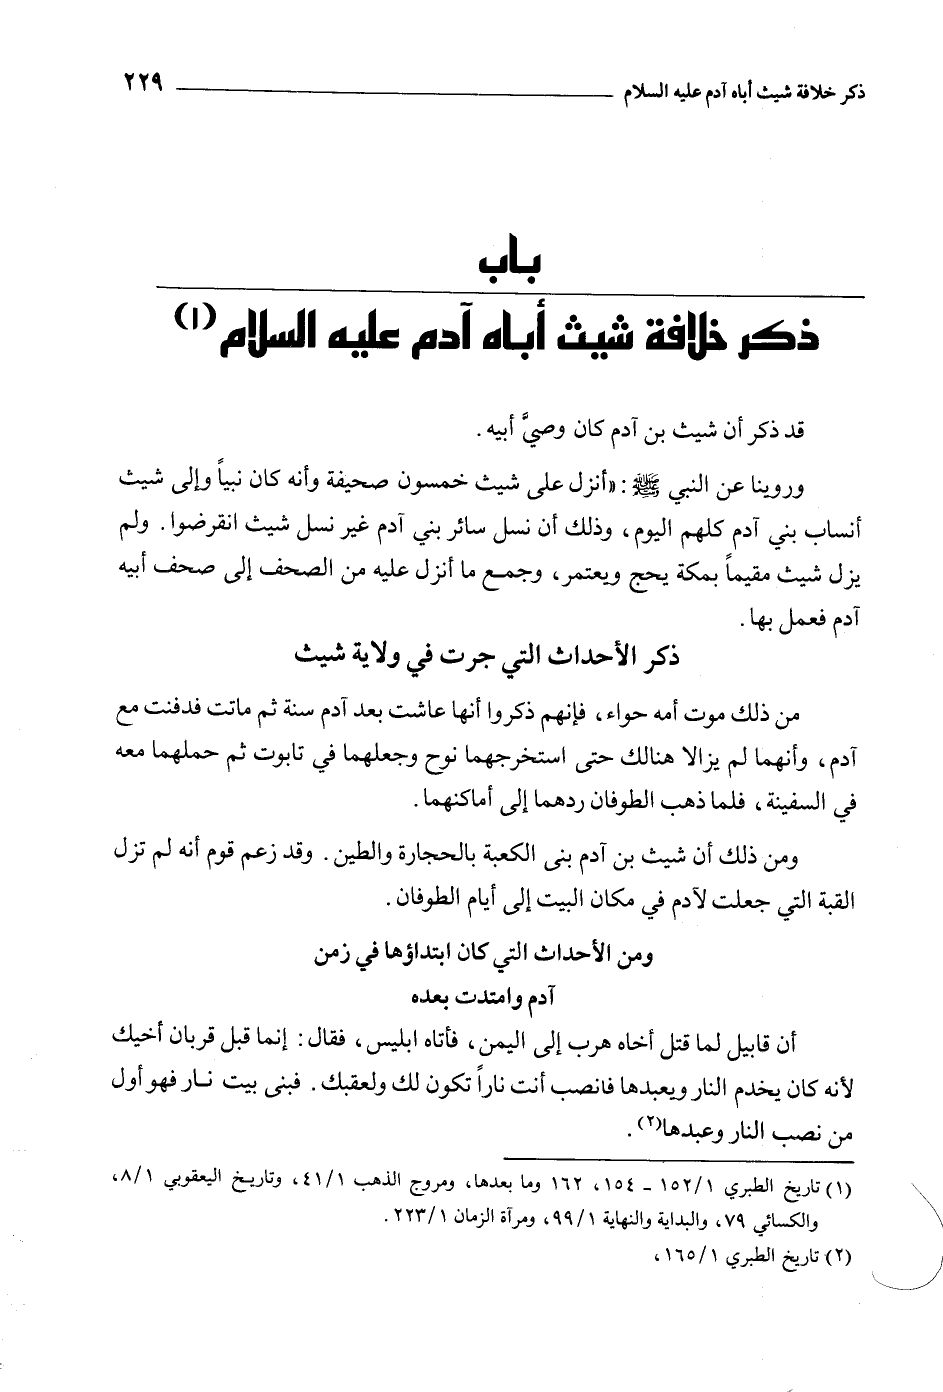 ذكر خلافة شيث أباه آدم عليه السلام ٢٢٩
باب
ذكر خلافة شيث أباه آدم عليه السلام(١)
قد ذكر أن شيث بن آدم كان وصيَّ أبيه.
وروينا عن النبي ﷺ: «أنزل على شيث خمسون صحيفة وأنه كان نبياً وإلى شيث
أنساب بني آدم كلهم اليوم، وذلك أن نسل سائر بني آدم غير نسل شيث انقرضوا. ولم
يزل شيث مقيماً بمكة يحج ويعتمر، وجمع ما أنزل عليه من الصحف إلى صحف أبيه
آدم فعمل بها.
ذكر الأحداث التي جرت في ولاية شيث
من ذلك موت أمه حواء، فإنهم ذكروا أنها عاشت بعد آدم سنة ثم ماتت فدفنت مع
آدم، وأنهما لم يزالا هنالك حتى استخرجهما نوح وجعلهما في تابوت ثم حملهما معه
في السفينة، فلما ذهب الطوفان ردهما إلى أماكنهما.
ومن ذلك أن شيث بن آدم بنى الكعبة بالحجارة والطين. وقد زعم قوم أنه لم تزل
القبة التي جعلت لآدم في مكان البيت إلى أيام الطوفان.
ومن الأحداث التي كان ابتداؤها في زمن
آدم وامتدت بعده
أن قابيل لما قتل أخاه هرب إلى اليمن، فأتاه ابليس، فقال: إنما قبل قربان أخيك
لأنه كان يخدم النار ويعبدها فانصب أنت ناراً تكون لك ولعقبك. فبنى بيت نار فهو أول
من نصب النار وعبدها(٢).
(١) تاريخ الطبري ١/١٥٢ ـ ١٥٤، ١٦٢ وما بعدها، ومروج الذهب ١/٤١، وتاريخ اليعقوبي ١/٨،
والكسائي ٧٩، والبداية والنهاية ١/٩٩، ومرآة الزمان ١/٢٢٣.
(٢) تاريخ الطبري ١/١٦٥،